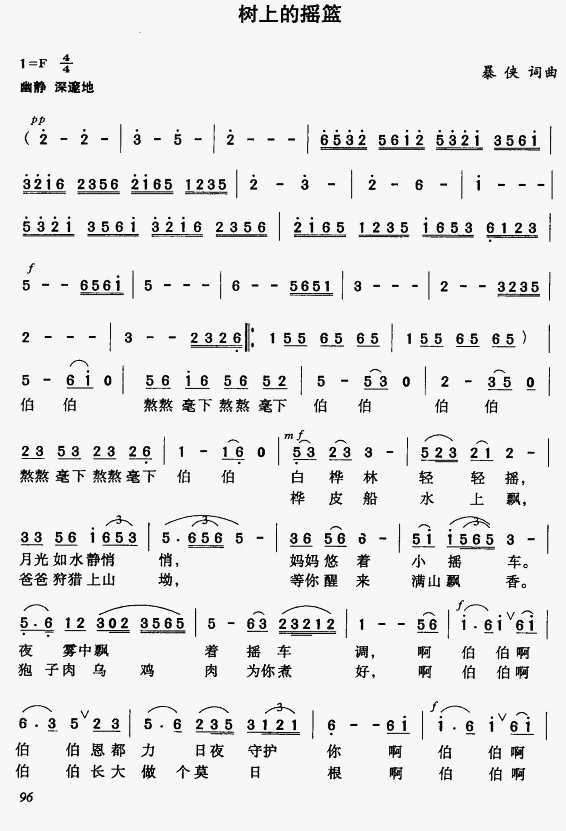 树上的摇篮
1=F 4/4
暴 侠 词曲
幽静 深邃地
pp
( 2 - 2 - | 3 - 5 - | 2 - - - | 6532 5612 5321 3561 |
3216 2356 2165 1235 | 2 - 3 - | 2 - 6 - | 1 - - - |
5321 3561 3216 2356 | 2165 1235 1653 6123 |
f
5 - - 6561 | 5 - - - | 6 - - 5651 | 3 - - - | 2 - - 3235 |
2 - - - | 3 - - 2326 ‖: 155 65 65 65 | 155 65 65 65 ) |
5 - 61 0 | 56 16 56 52 | 5 - 53 0 | 2 - 35 0 |
伯 伯 熬熬 毫下 熬熬 毫下 伯 伯 伯 伯
mf
23 53 23 26 | 1 - 16 0 | 53 23 3 - | 523 21 2 - |
熬熬 毫下 熬熬 毫下 伯 伯 白 桦 林 轻 轻 摇,
桦 皮 船 水 上 飘,
33 56 1653 | 5.656 5 - | 36 56 6 - | 51 1565 3 - |
月光 如水 静悄 悄, 妈妈 悠 着 小 摇 车。
爸爸 狩猎 上山 坳, 等你 醒 来 满山 飘 香。
f
5.6 12 302 3565 | 5 - 63 23212 | 1 - - 56 | 1.61 ∨ 61 |
夜 雾中 飘 着 摇 车 调, 啊 伯 伯 啊
狍 子肉 乌 鸡 肉 为你 煮 好, 啊 伯 伯 啊
f
6.3 5 ∨ 23 | 5.6 235 3121 | 6 - - 61 | 1.6 1 ∨ 61 |
伯 伯 恩都 力 日夜 守护 你 啊 伯 伯 啊
伯 伯 长大 做 个莫 日 根 啊 伯 伯 啊
96